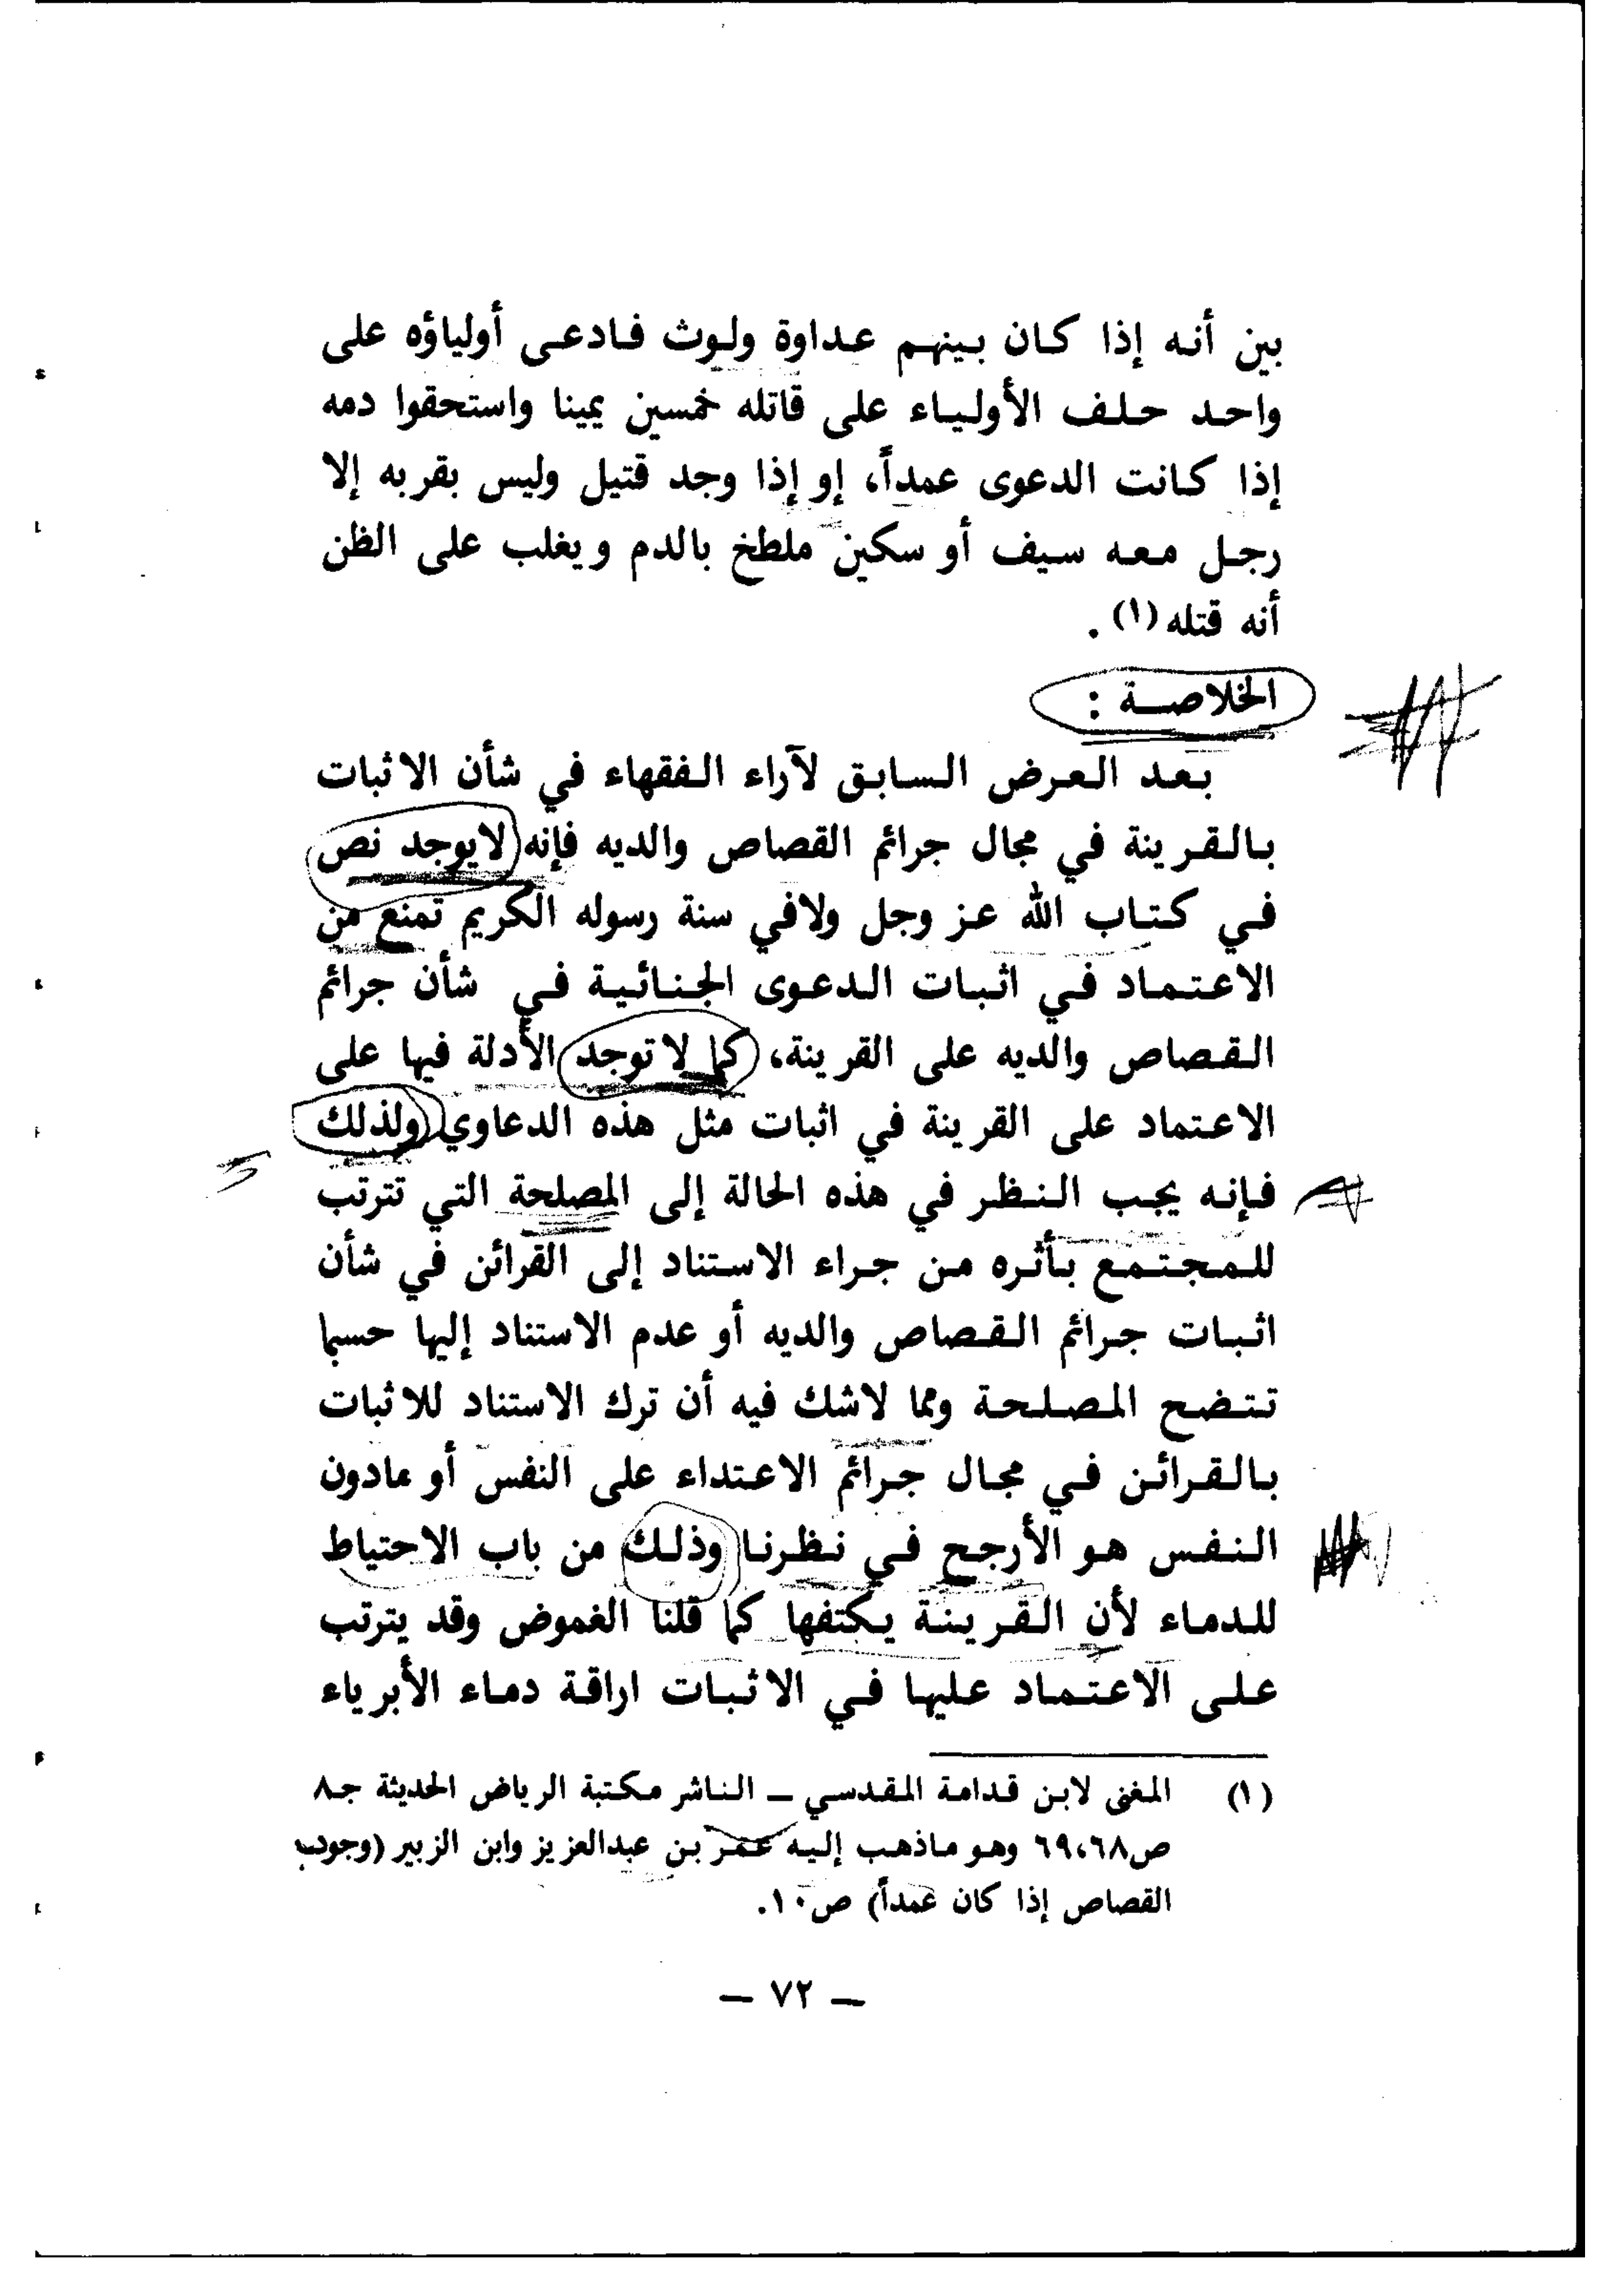 بين أنه إذا كان بينهم عداوة ولوث فادعى أولياؤه على
واحد حلف الأولياء على قاتله خمسين يمينا واستحقوا دمه
إذا كانت الدعوى عمداً، إو إذا وجد قتيل وليس بقربه إلا
رجل معه سيف أو سكين ملطخ بالدم ويغلب على الظن
أنه قتله (١) .
الخلاصة :
بعد العرض السابق لآراء الفقهاء في شأن الاثبات
بالقرينة في مجال جرائم القصاص والديه فإنه لايوجد نص
في كتاب الله عز وجل ولافي سنة رسوله الكريم تمنع من
الاعتماد في اثبات الدعوى الجنائية في شأن جرائم
القصاص والديه على القرينة، كما لا توجد الأدلة فيها على
الاعتماد على القرينة في اثبات مثل هذه الدعاوي ولذلك
فإنه يجب النظر في هذه الحالة إلى المصلحة التي تترتب
للمجتمع بأثره من جراء الاستناد إلى القرائن في شأن
اثبات جرائم القصاص والديه أو عدم الاستناد إليها حسبما
تتضح المصلحة ومما لاشك فيه أن ترك الاستناد للاثبات
بالقرائن في مجال جرائم الاعتداء على النفس أو مادون
النفس هو الأرجح في نظرنا وذلك من باب الاحتياط
للدماء لأن القرينة يكتفها كما قلنا الغموض وقد يترتب
على الاعتماد عليها في الاثبات اراقة دماء الأبرياء
(١) المغنى لابن قدامة المقدسي ــ الناشر مكتبة الرياض الحديثة جـ٨
ص٦٩،٦٨ وهو ماذهب إليه عمر بن عبدالعزيز وابن الزبير (وجوب
القصاص إذا كان عمداً) ص١٠.
ــ ٧٢ ــ